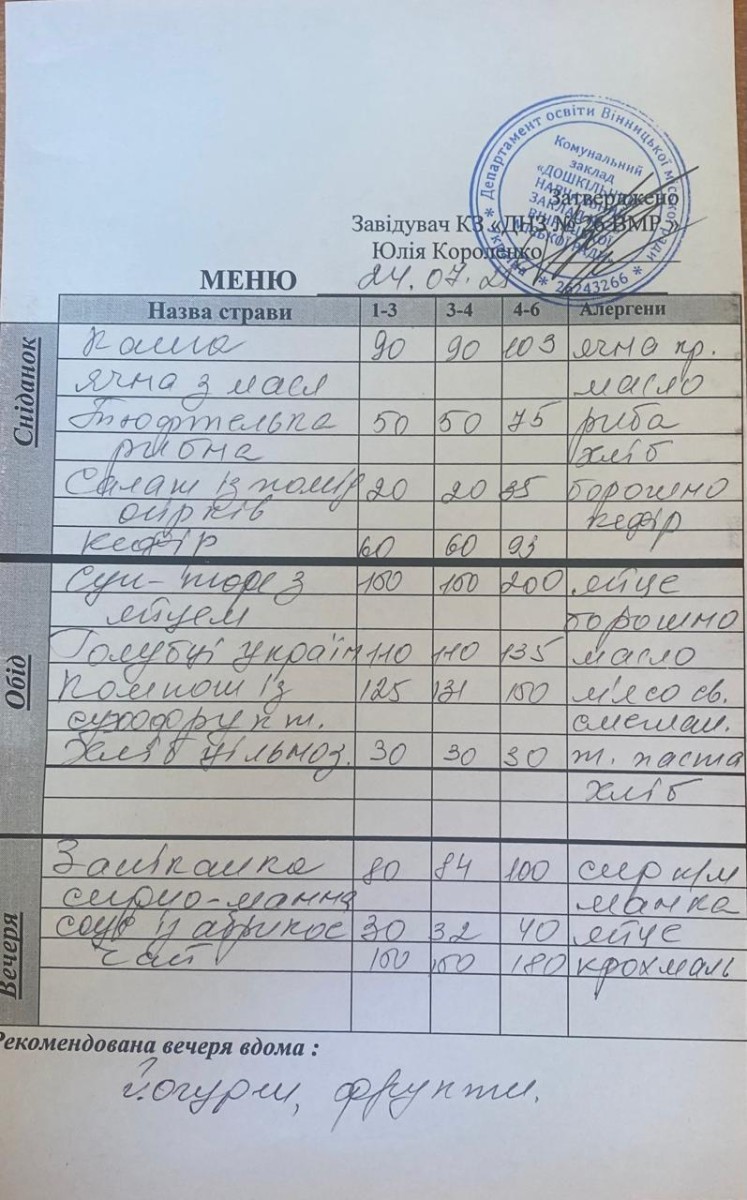 Департамент освіти Вінницької міської ради
Україна * 26243266 *
Комунальний
заклад
«ДОШКІЛЬНИЙ
НАВЧАЛЬНИЙ
ЗАКЛАД №
ВІННИЦЬКОЇ
МІСЬКОЇ РАДИ
Затверджено
Завідувач КЗ «ДНЗ № 26 ВМР »
Юлія Короленко
МЕНЮ 24.07.2
Назва страви 1-3 3-4 4-6 Алергени
Сніданок
Каша 90 90 103 ячна кр.
ячна з масл масло
Тюфтелька 50 50 75 риба
рибна хліб
Салат із помід 20 20 35 борошно
огірків кефір
кефір 60 60 93
Обід
Суп-пюре з 150 150 200 яйце
яйцем борошно
Голубці україн 110 110 135 масло
Компот із 125 131 150 м'ясо св.
сухофрукт. сметан.
Хліб цільноз. 30 30 30 т. паста
хліб
Вечеря
Запіканка 80 84 100 сир к/м
сирно-манна манка
соус із абрикос 30 32 40 яйце
чай 150 150 180 крохмаль
Рекомендована вечеря вдома :
Йогурт, фрукти.